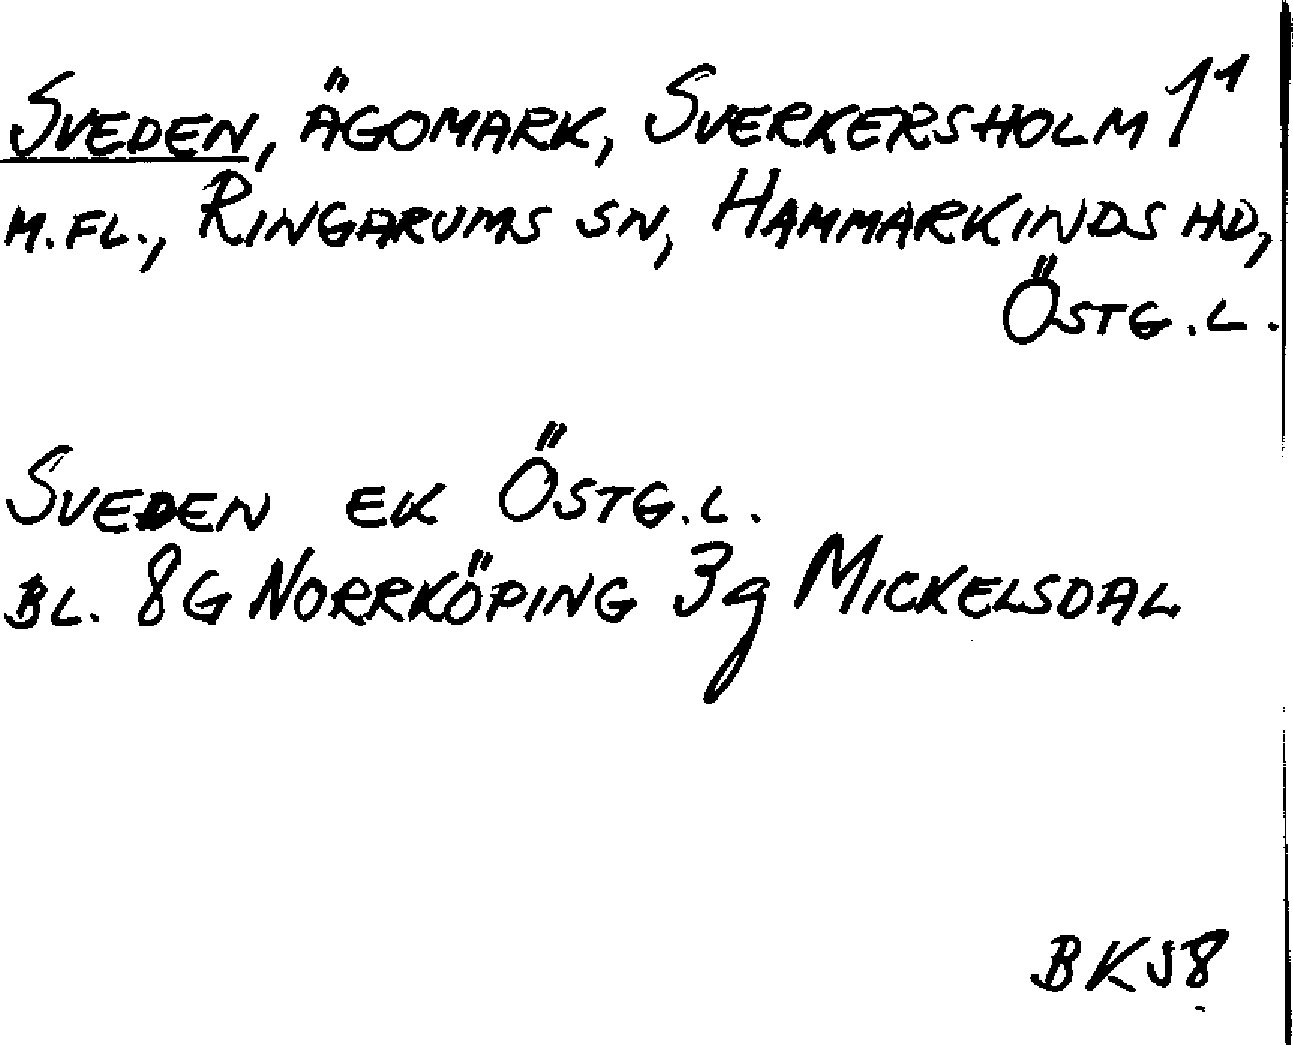 SVEDEN, ÄGOMARK, SVERKERSHOLM 1¹
M.FL., RINGARUMS SN, HAMMARKINDS HD,
ÖSTG.L.
SVEDEN EK ÖSTG.L.
BL. 8G NORRKÖPING 3g MICKELSDAL
BKS8